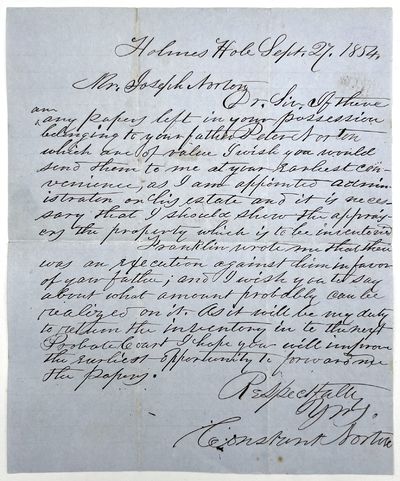 Holmes Hole Sept. 27. 1854.
Mr. Joseph Norton
Dr. Sir, If there
are
any papers left in your possession
belonging to your father Peter Norton
which are of value I wish you would
send them to me at your Earliest con-
venience, as I am appointed admin-
istrator on his estate and it is neces-
sary that I should show the apprais-
ers the property which is to be inventoried
Franklin wrote me that there
was an Execution against him in favor
of your father; and I wish you to say
about what amount probably can be
realized on it. As it will be my duty
to return the inventory in to the next
Probate Court I hope you will improve
the Earliest opportunity to forward me
the papers.
Respectfully
Yrs.
Constant Norton